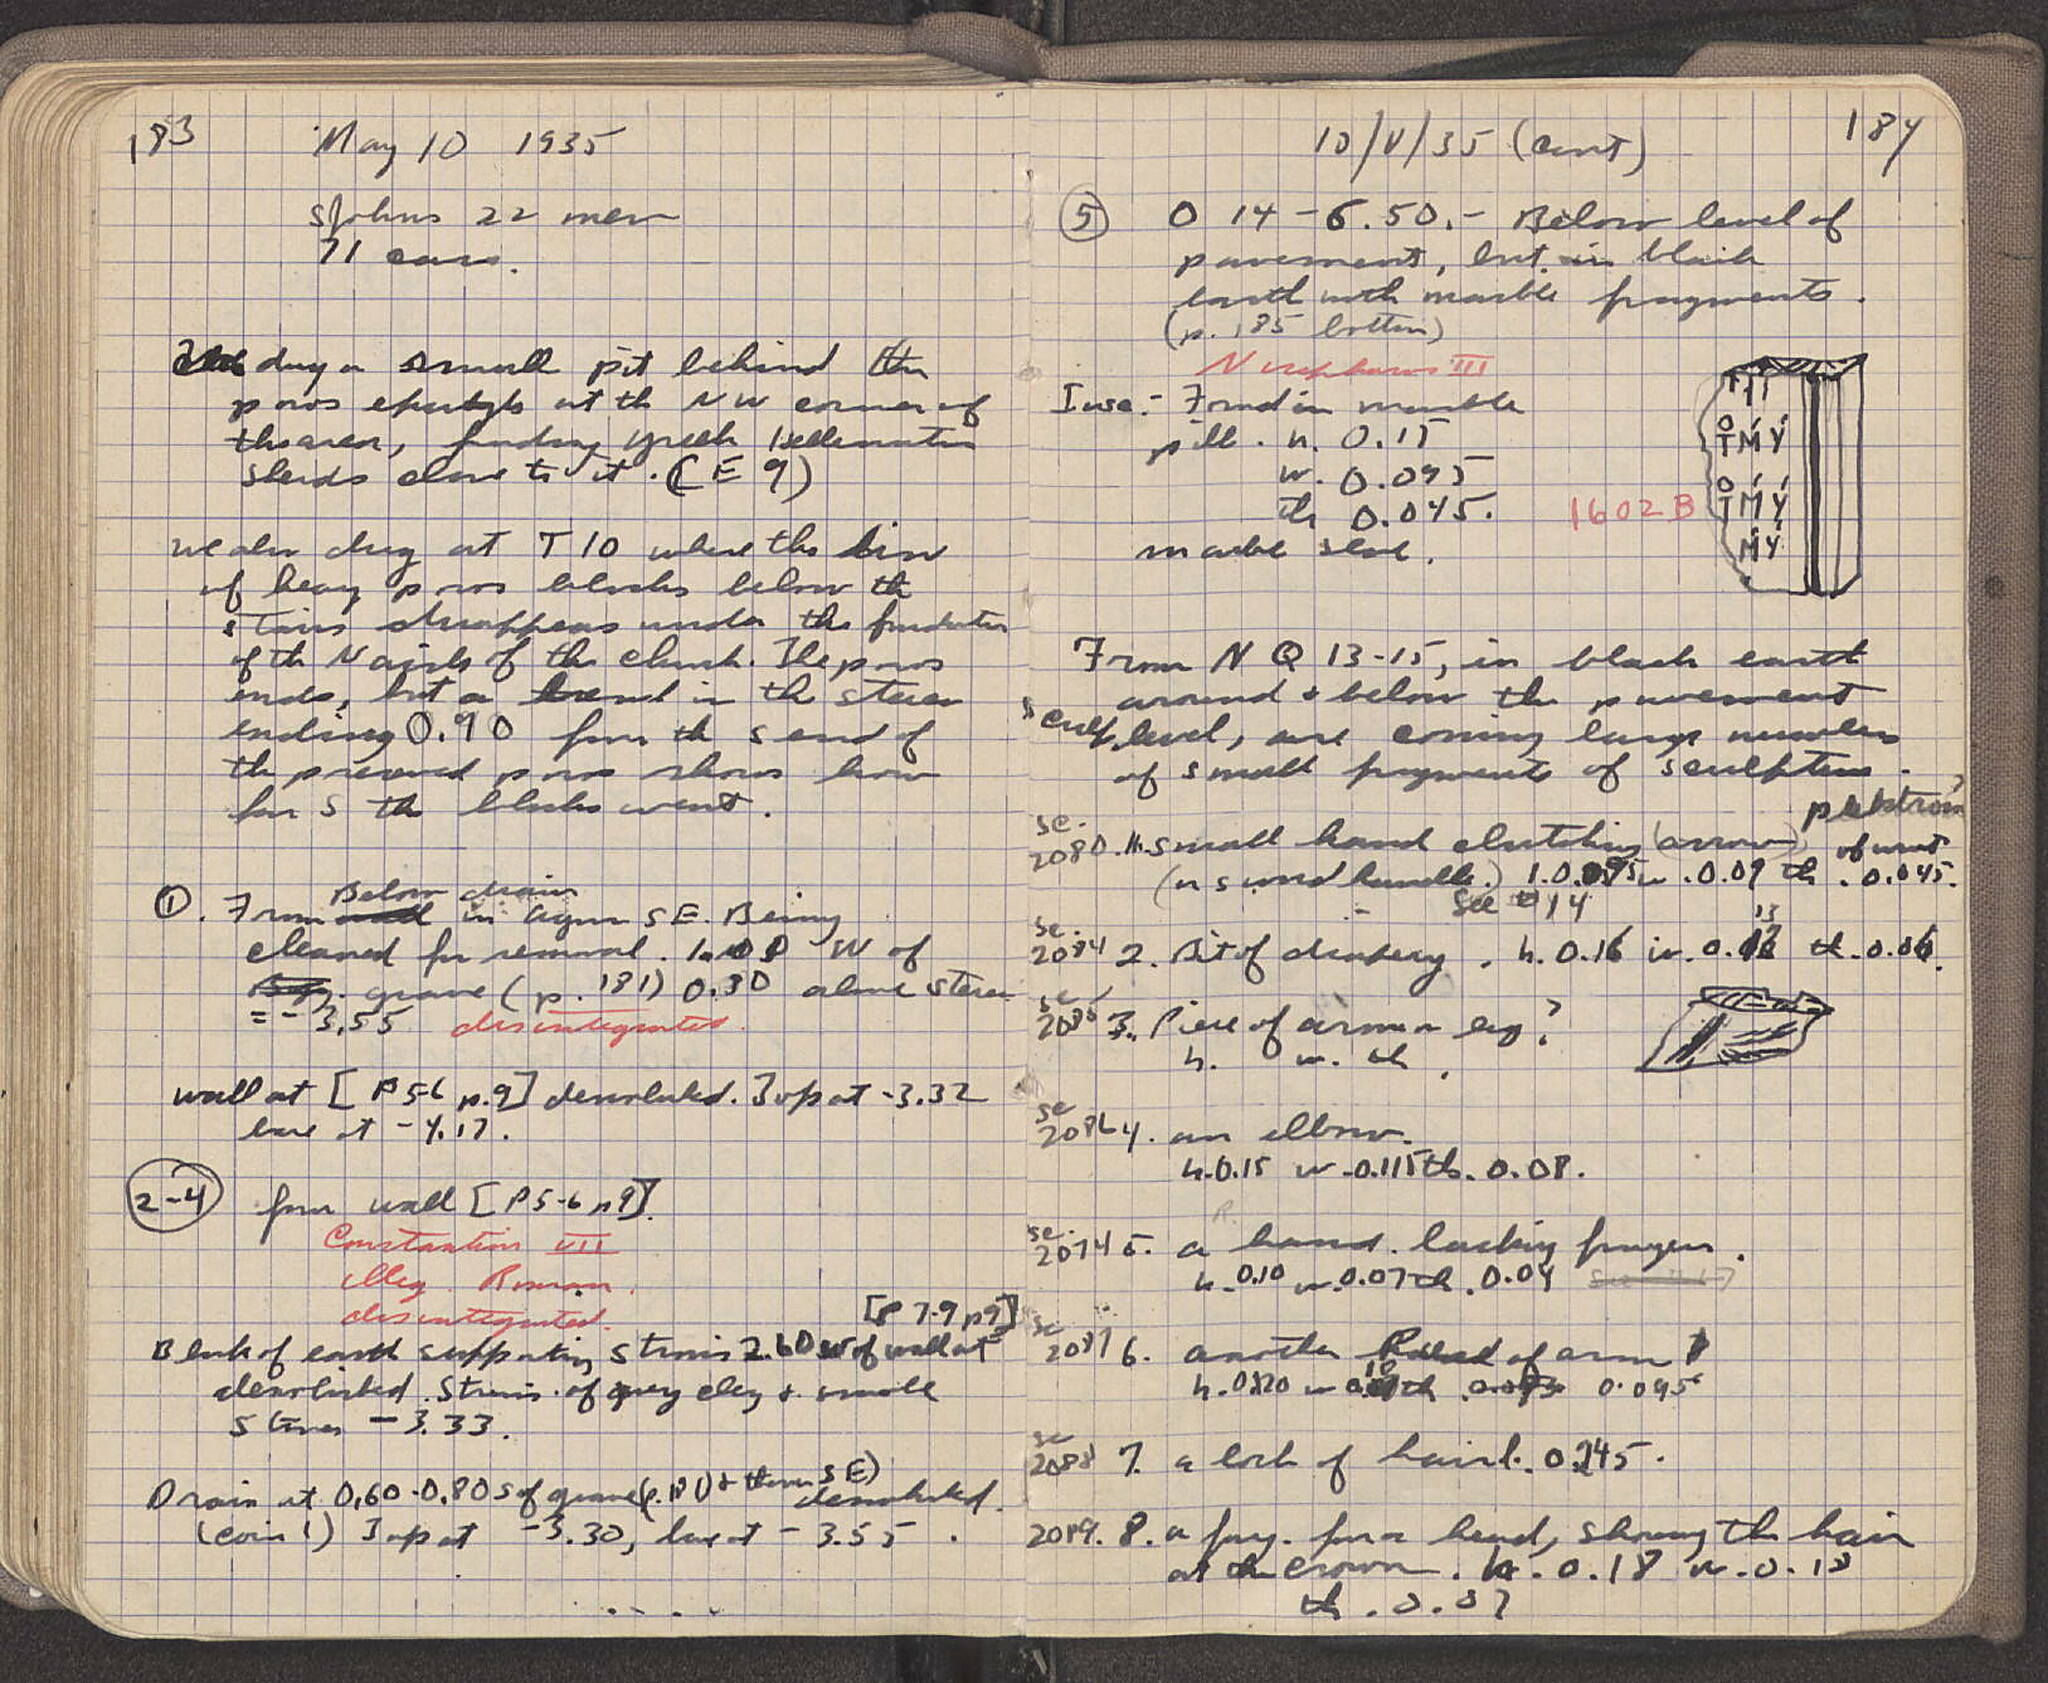 183
May 10 1935
St Johns 22 men
71 cars.
dug a small pit behind the
poros at the NW corner of
the area, finding Greek Hellenistic
sherds close to it. (E 9)
We also dug at T 10 where the line
of heavy poros blocks below the
stairs disappears under the foundation
of the N aisle of the church. The poros
ends, but a bend in the stereo
ending 0.90 from the S end of
the preserved poros shows how
far S the blocks went.
①. From Below drain in agora SE. Being
cleaned for removal. 1.00 W of
grave (p. 181) 0.30 above stereo
= - 3.55 disintegrated.
Wall at [P 5-6 p.9] demolished. Top at -3.32
base at -4.17.
2-4 from wall [P 5-6 p9].
Constantine VII
illeg. Roman.
disintegrated.
[P 7-9 p9]
Bank of earth supporting stones 2.60 W of wall at
demolished. of grey clay & small
stones - 3.33.
Drain at 0.60-0.80 S of grave (p. 181) & thence SE) demolished.
(coin 1) Top at -3.30, base at - 3.55.
10/V/35 (cont)
184
⑤ O 14 - 6.50.- Below level of
pavement, but in black
earth with marble fragments.
(p. 185 bottom)
Nicephorus III
Insc.- Found in marble
pile. h. 0.15
w. 0.095
th 0.045.
1602 B
marble slab.
ΤΜΥ
ΤΜΥ
ΜΥ
From N Q 13-15, in black earth
around & below the pavement
Sculp. level, are coming large numbers
of small fragments of sculpture.
plektron
Sc. 2080. 1. Small hand clutching (arrow)
(or sword handle.) w. 0.09 th. 0.045.
See #14
Sc. 2084 2. Bit of drapery. h. 0.16 w. 0.13 th. 0.06.
Sc. 2085 3. Piece of arm or leg?
h. w. th.
Sc 2086 4. an elbow.
h. 0.15 w. 0.115 th. 0.08.
R.
Sc. 2074 5. a hand. lacking fingers.
h. 0.10 w. 0.07 th. 0.04
Sc 2087 6. another of arm
0.095
Sc 2088 7. a lock of hair l. 0.245.
2089. 8. a frag. from a head, showing the hair
at the crown. h. 0.18 w. 0.13
th. 0.07